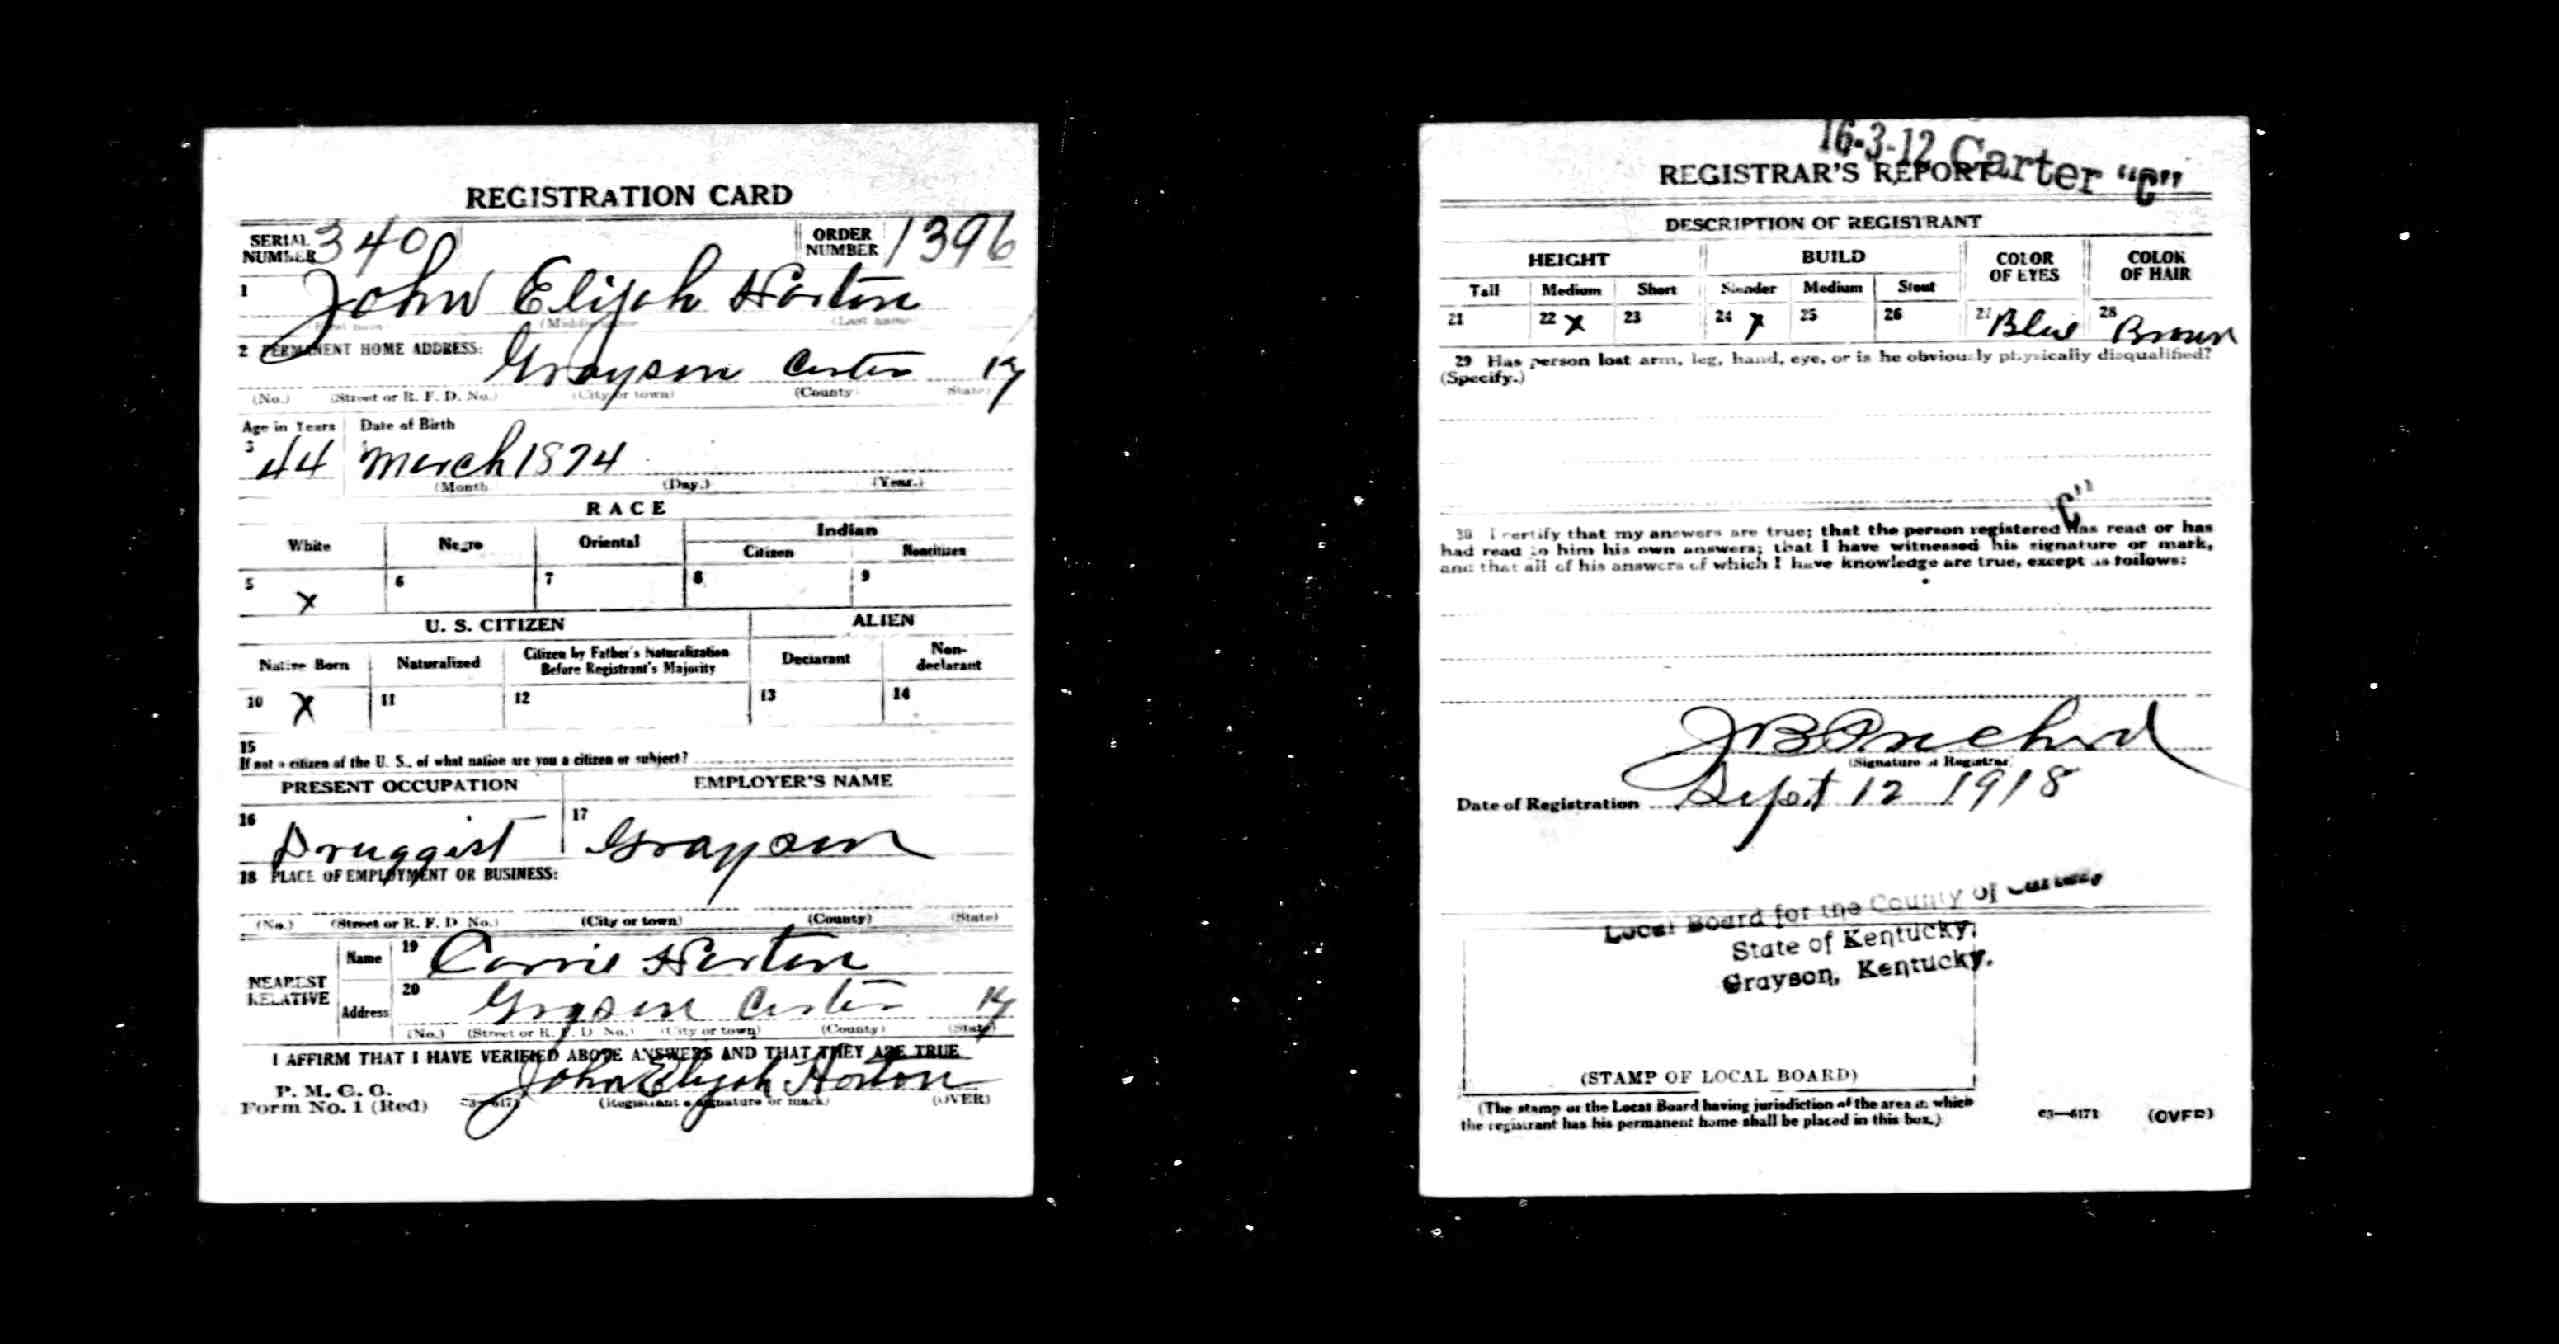 REGISTRATION CARD
SERIAL NUMBER 340 ORDER NUMBER 1396
1 John Elijah Horton
(First name) (Middle name) (Last name)
2 PERMANENT HOME ADDRESS:
Grayson Carter Ky
(No.) (Street or R. F. D. No.) (City or town) (County) (State)
Age in Years Date of Birth
3 44 March 1874
(Month) (Day.) (Year.)
RACE
White Negro Oriental Indian
Citizen Noncitizen
5 X 6 7 8 9
U. S. CITIZEN ALIEN
Native Born Naturalized Citizen by Father's Naturalization Before Registrant's Majority Declarant Non-declarant
10 X 11 12 13 14
15
If not a citizen of the U. S., of what nation are you a citizen or subject?
PRESENT OCCUPATION EMPLOYER'S NAME
16 Druggist 17 Grayson
18 PLACE OF EMPLOYMENT OR BUSINESS:
(No.) (Street or R. F. D. No.) (City or town) (County) (State)
NEAREST RELATIVE
Name 19 Carrie Horton
Address 20 Grayson Carter Ky
(No.) (Street or R. F. D. No.) (City or town) (County) (State)
I AFFIRM THAT I HAVE VERIFIED ABOVE ANSWERS AND THAT THEY ARE TRUE
P. M. G. O.
Form No. 1 (Red) 03—6171 John Elijah Horton
(Registrant's signature or mark) (OVER)
16-3-12 Carter "C"
REGISTRAR'S REPORT
DESCRIPTION OF REGISTRANT
HEIGHT BUILD COLOR OF EYES COLOR OF HAIR
Tall Medium Short Slender Medium Stout
21 22 X 23 24 X 25 26 27 Blue 28 Brown
29 Has person lost arm, leg, hand, eye, or is he obviously physically disqualified?
(Specify.)
"C"
30 I certify that my answers are true; that the person registered has read or has
had read to him his own answers; that I have witnessed his signature or mark,
and that all of his answers of which I have knowledge are true, except as follows:
J B Prichard
(Signature of Registrar)
Date of Registration Sept 12 1918
Local Board for the County of Carter,
State of Kentucky,
Grayson, Kentucky.
(STAMP OF LOCAL BOARD)
(The stamp of the Local Board having jurisdiction of the area in which
the registrant has his permanent home shall be placed in this box.)
03—6171 (OVER)